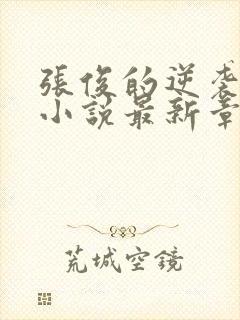 張俊的逆袭
小説最新章
荒城空鏡